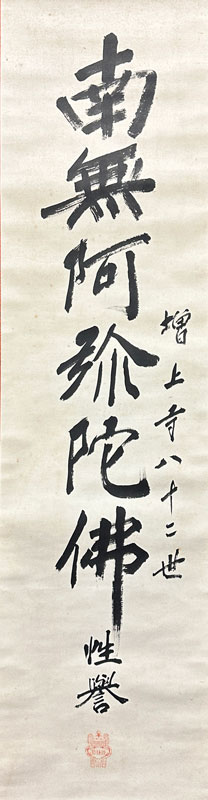 南無阿弥陀佛
増上寺八十二世
性譽